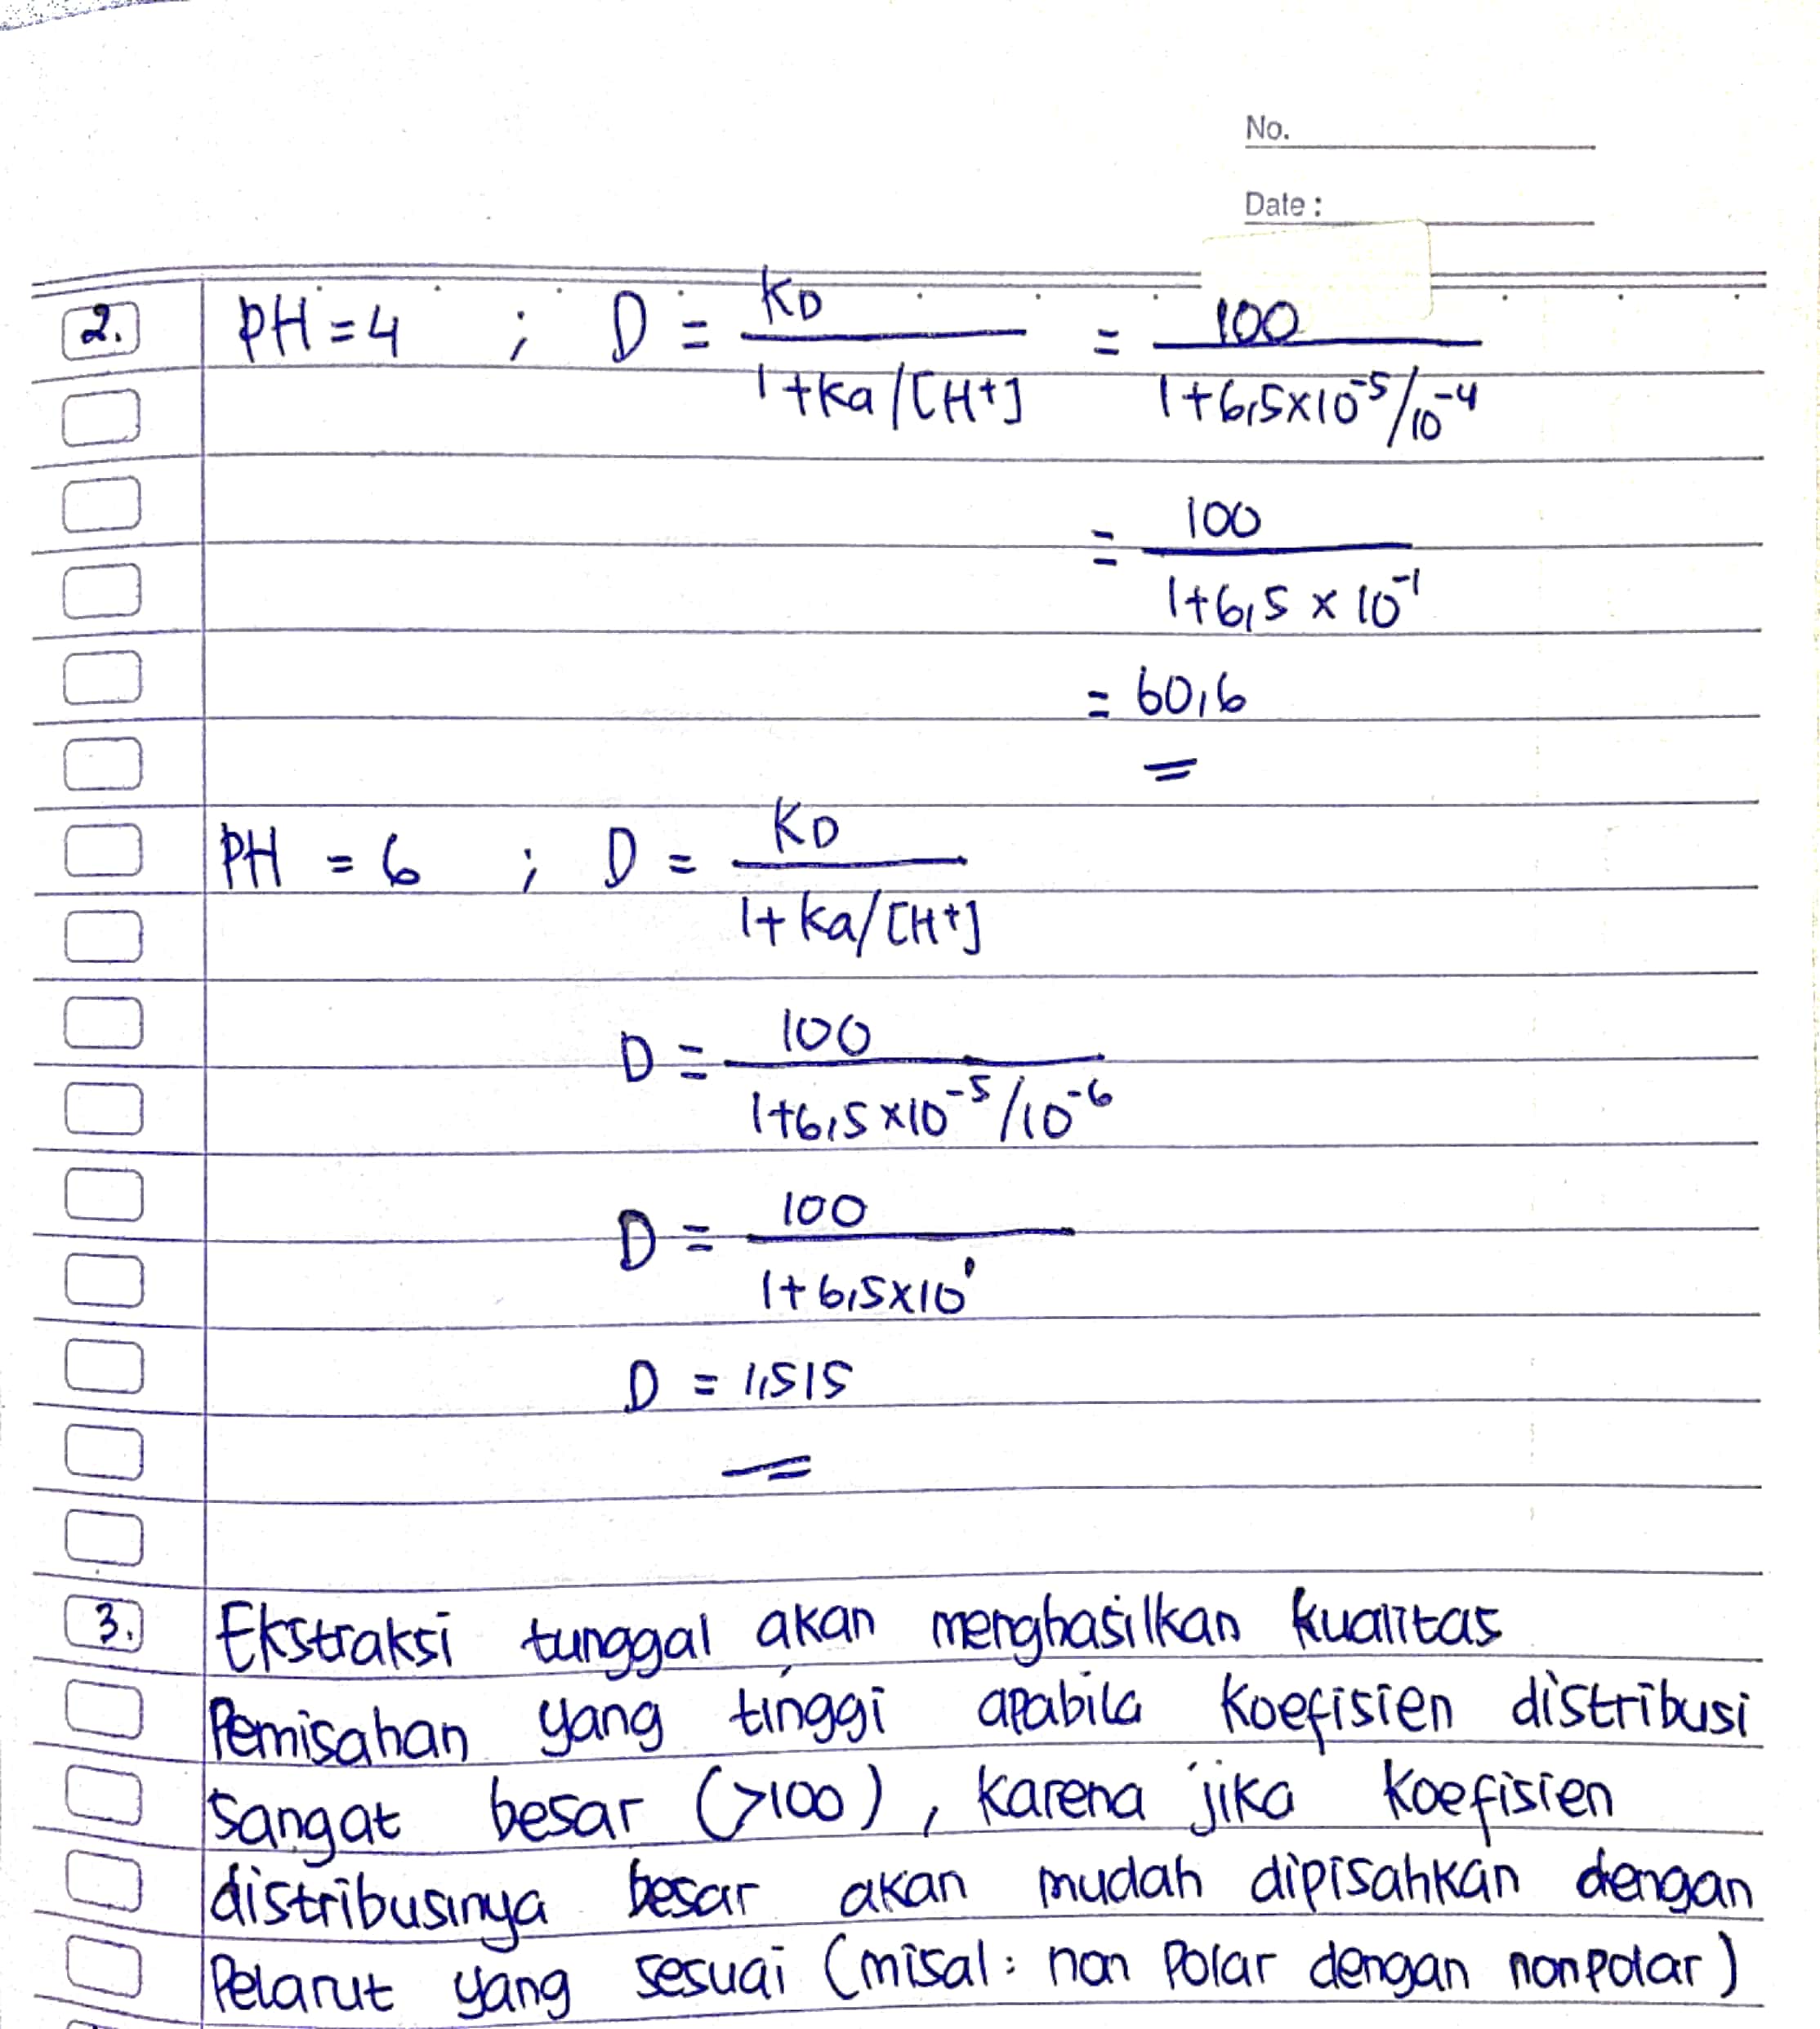 No.
Date :
2. PH = 4 ; D = KD / 1+Ka/[H+] = 100 / 1+6,5×10^-5/10^-4
= 100 / 1+6,5 × 10^-1
= 60,6
PH = 6 ; D = KD / 1+Ka/[H+]
D = 100 / 1+6,5×10^-5/10^-6
D = 100 / 1+6,5×10^1
D = 1,515
3. Ekstraksi tunggal akan menghasilkan kualitas
Pemisahan yang tinggi apabila Koefisien distribusi
Sangat besar (>100), Karena jika Koefisien
distribusinya besar akan mudah dipisahkan dengan
Pelarut yang sesuai (misal: non Polar dengan nonpolar)